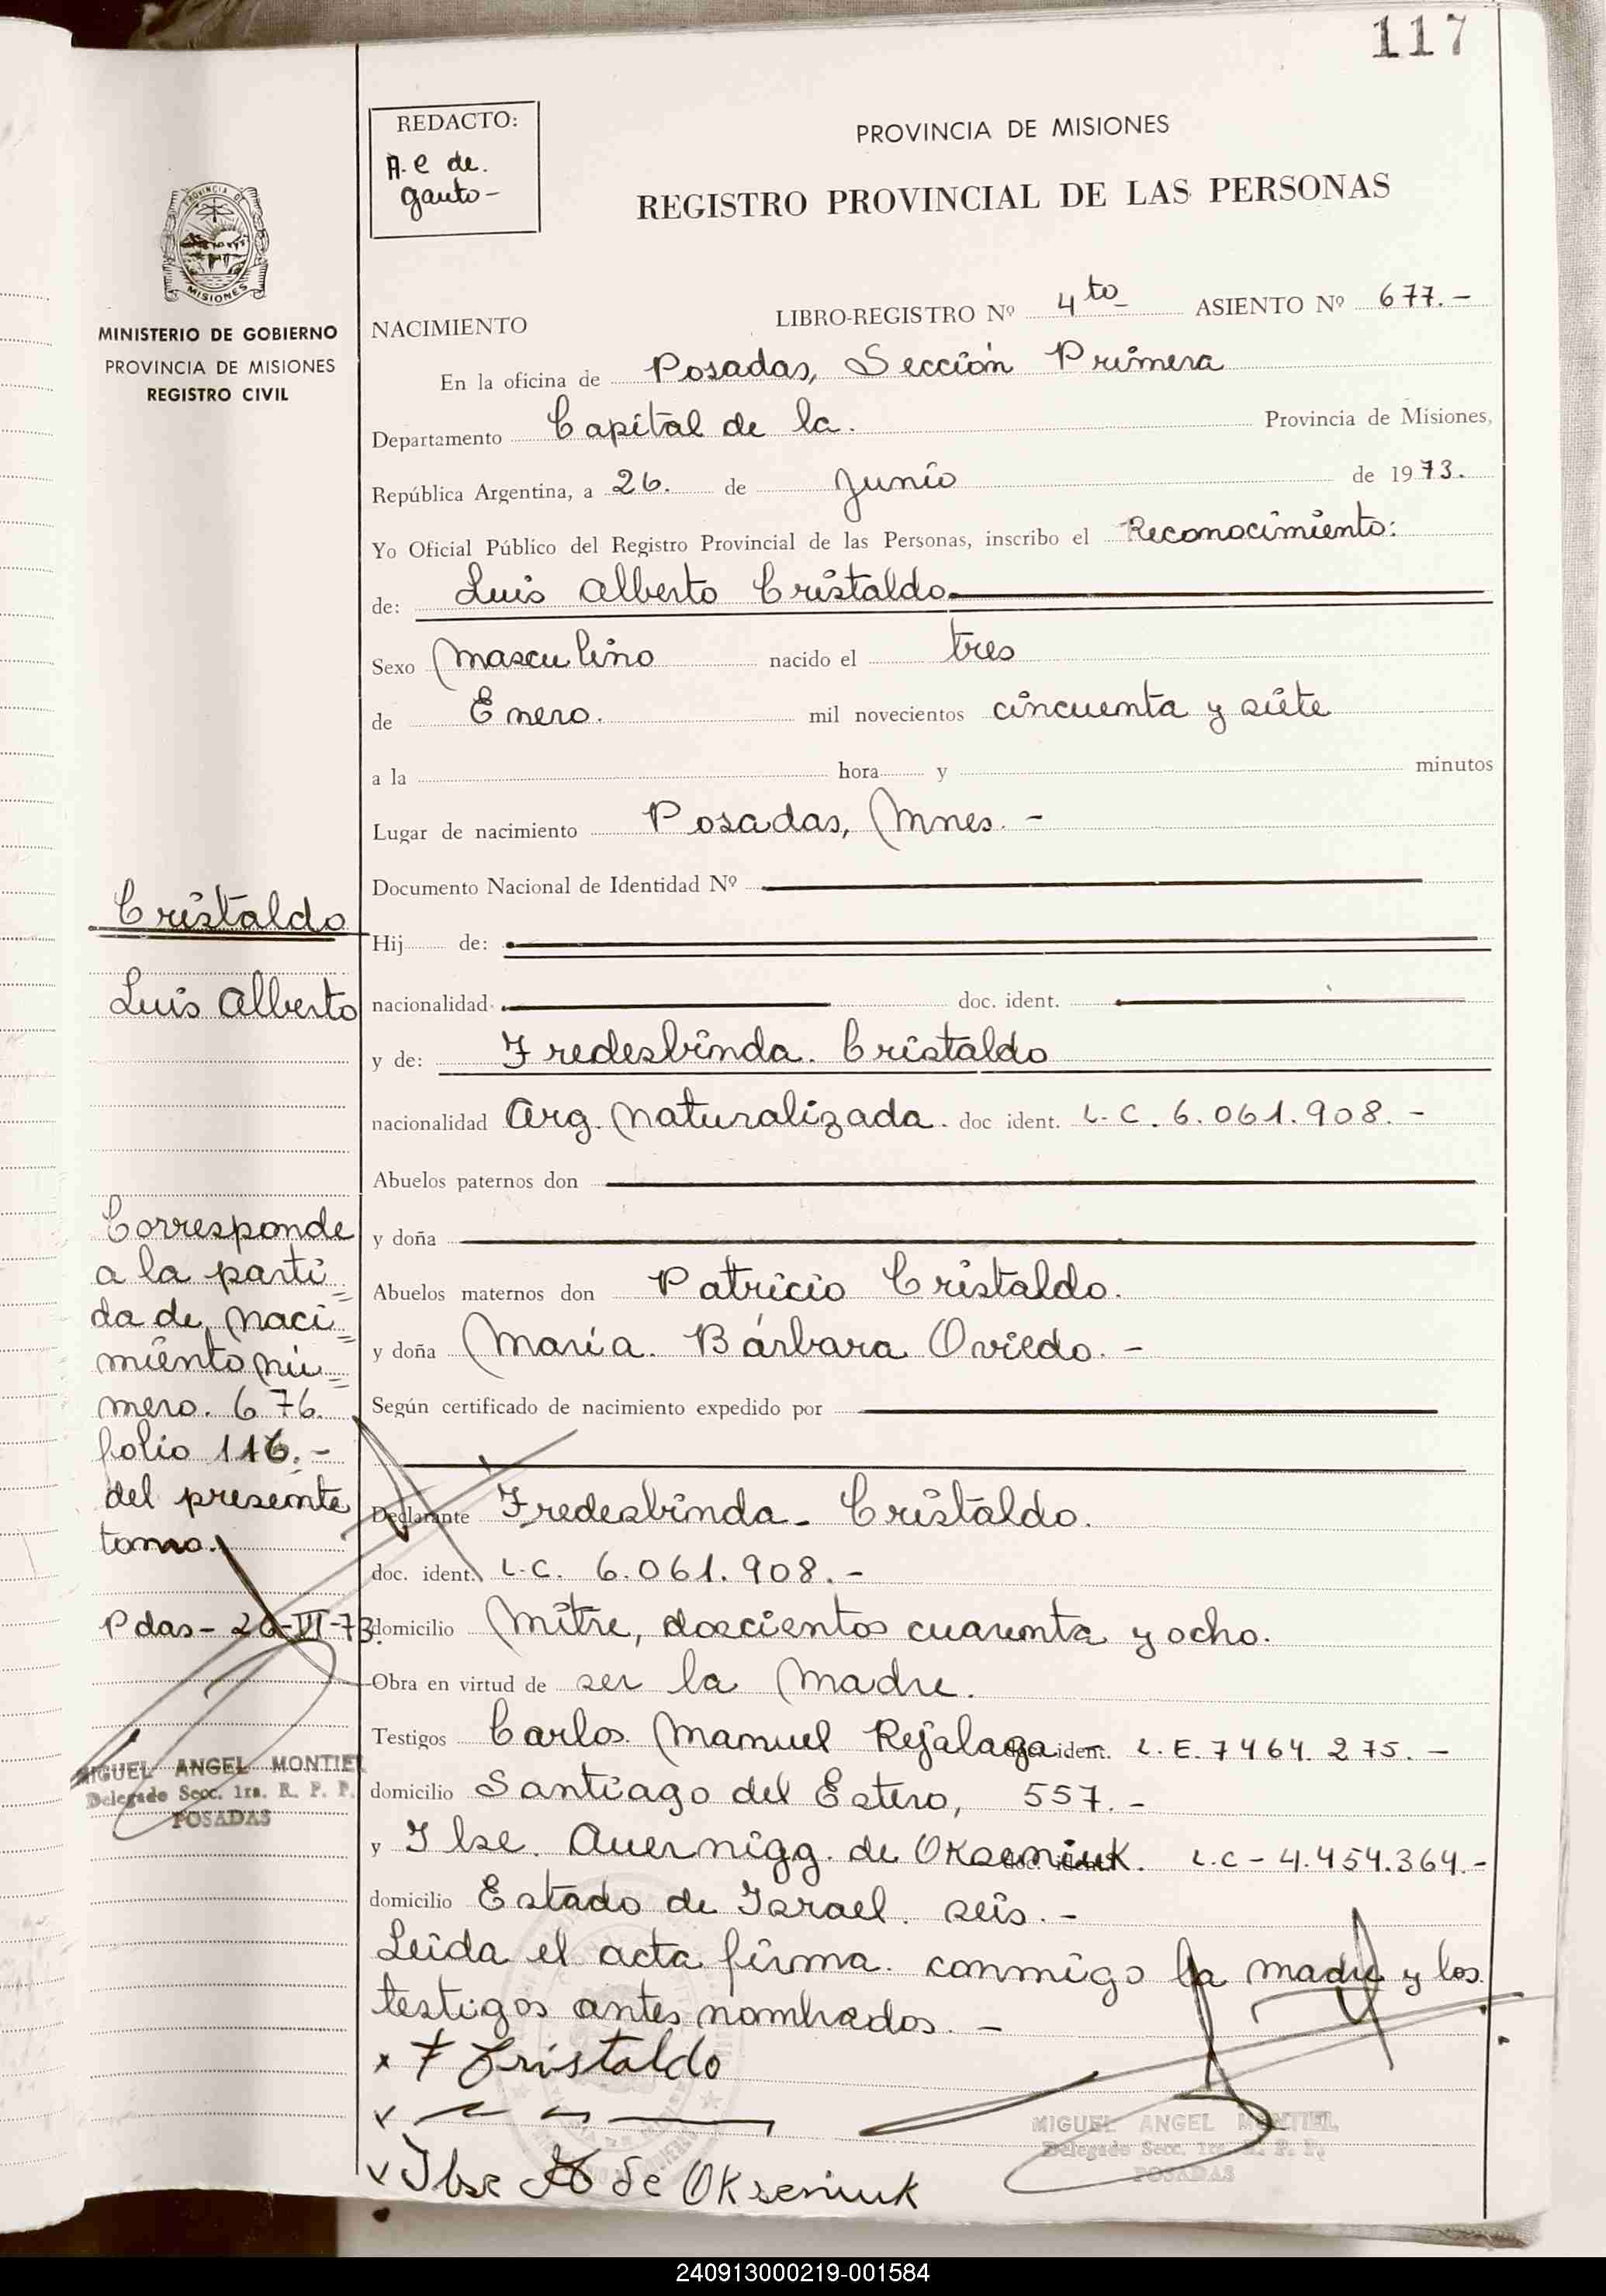 117
REDACTO:
A. e de.
gauto-
PROVINCIA DE MISIONES
REGISTRO PROVINCIAL DE LAS PERSONAS
PROVINCIA DE
MISIONES
MINISTERIO DE GOBIERNO
PROVINCIA DE MISIONES
REGISTRO CIVIL
NACIMIENTO LIBRO-REGISTRO Nº 4to ASIENTO Nº 677.-
En la oficina de Posadas, Sección Primera
Departamento Capital de la. Provincia de Misiones,
República Argentina, a 26. de Junio de 1973.
Yo Oficial Público del Registro Provincial de las Personas, inscribo el Reconocimiento:
de: Luis Alberto Cristaldo
Sexo Masculino nacido el tres
de Enero. mil novecientos cincuenta y siete
a la hora y minutos
Lugar de nacimiento Posadas, Mnes. -
Documento Nacional de Identidad Nº
Hij de:
nacionalidad doc. ident.
y de: Fredesbinda. Cristaldo
nacionalidad Arg. Naturalizada. doc ident. L.C. 6.061.908. -
Abuelos paternos don
y doña
Abuelos maternos don Patricio Cristaldo.
y doña María. Bárbara Oviedo. -
Según certificado de nacimiento expedido por
Declarante Fredesbinda- Cristaldo.
doc. ident. L.C. 6.061.908. -
domicilio Mitre, doscientos cuarenta y ocho.
Obra en virtud de ser la Madre.
Testigos Carlos. Manuel Rejalaga ident. L.E. 7464.275. -
domicilio Santiago del Estero, 557. -
y Ilse. Auernigg. de Okseniuk. L.C - 4.454.364.-
domicilio Estado de Israel. seis. -
Leida el acta firma. conmigo la madre y los
testigos antes nombrados. -
x F Cristaldo
Ilse de Okseniuk
MIGUEL ANGEL MONTIEL
Delegado Secc. 1ra. R. P. P.
POSADAS
Cristaldo
Luis Alberto
Corresponde
a la parti=
da de Naci=
miento nú=
mero. 676.
folio 116. -
del presente
tomo.
Pdas- 26-VI-73.
MIGUEL ANGEL MONTIEL
Delegado Secc. 1ra. R. P. P.
POSADAS
240913000219-001584